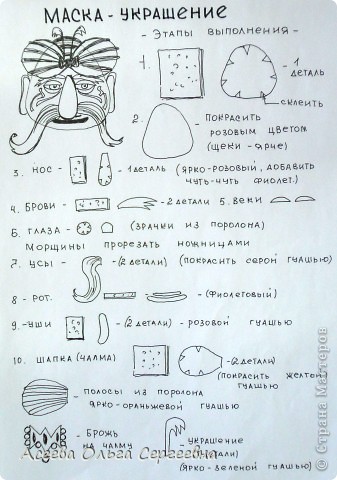 МАСКА - УКРАШЕНИЕ
- ЭТАПЫ ВЫПОЛНЕНИЯ -
1.
- 1 ДЕТАЛЬ
СКЛЕИТЬ
2.
- ПОКРАСИТЬ
РОЗОВЫМ ЦВЕТОМ
(ЩЕКИ - ЯРЧЕ)
3. НОС - 1 ДЕТАЛЬ (ЯРКО-РОЗОВЫЙ, ДОБАВИТЬ
ЧУТЬ-ЧУТЬ ФИОЛЕТ.)
4. БРОВИ - 2 ДЕТАЛИ 5. ВЕКИ
6. ГЛАЗА - (ЗРАЧКИ ИЗ ПОРОЛОНА)
МОРЩИНЫ ПРОРЕЗАТЬ НОЖНИЦАМИ
7. УСЫ - (2 ДЕТАЛИ) (ПОКРАСИТЬ СЕРОЙ ГУАШЬЮ)
8 - РОТ. - (ФИОЛЕТОВЫЙ)
9 - УШИ - (2 ДЕТАЛИ) - РОЗОВОЙ ГУАШЬЮ
10. ШАПКА (ЧАЛМА) - (2 ДЕТАЛИ)
(ПОКРАСИТЬ ЖЕЛТОЙ
ГУАШЬЮ)
- ПОЛОСЫ ИЗ ПОРОЛОНА
ЯРКО-ОРАНЬЖЕВОЙ ГУАШЬЮ
- БРОЖЬ
НА ЧАЛМУ
- УКРАШЕНИЕ
ДЕТАЛИ)
(ЯРКО-ЗЕЛЕНОЙ ГУАШЬЮ)
Асеева Ольга Сергеевна
© Страна Мастеров